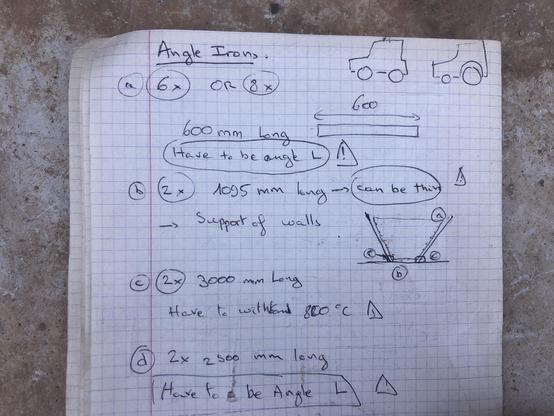 Angle Irons.
(a) 6x OR 8x
600
600 mm Long
Have to be angle L
(b) 2x 1095 mm long → can be thin
→ Support of walls
a
e e
b
(c) 2x 3000 mm Long
Have to withstand 800 °C
(d) 2x 2500 mm long
Have to be Angle L